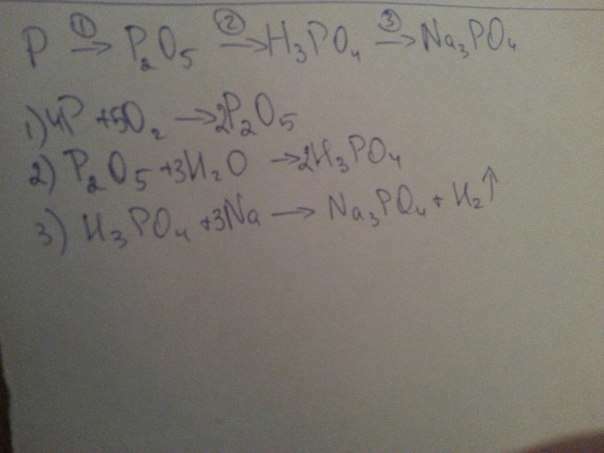 P ①→ P₂O₅ ②→ H₃PO₄ ③→ Na₃PO₄
1) 4P + 5O₂ → 2P₂O₅
2) P₂O₅ + 3H₂O → 2H₃PO₄
3) H₃PO₄ + 3Na → Na₃PO₄ + H₂↑